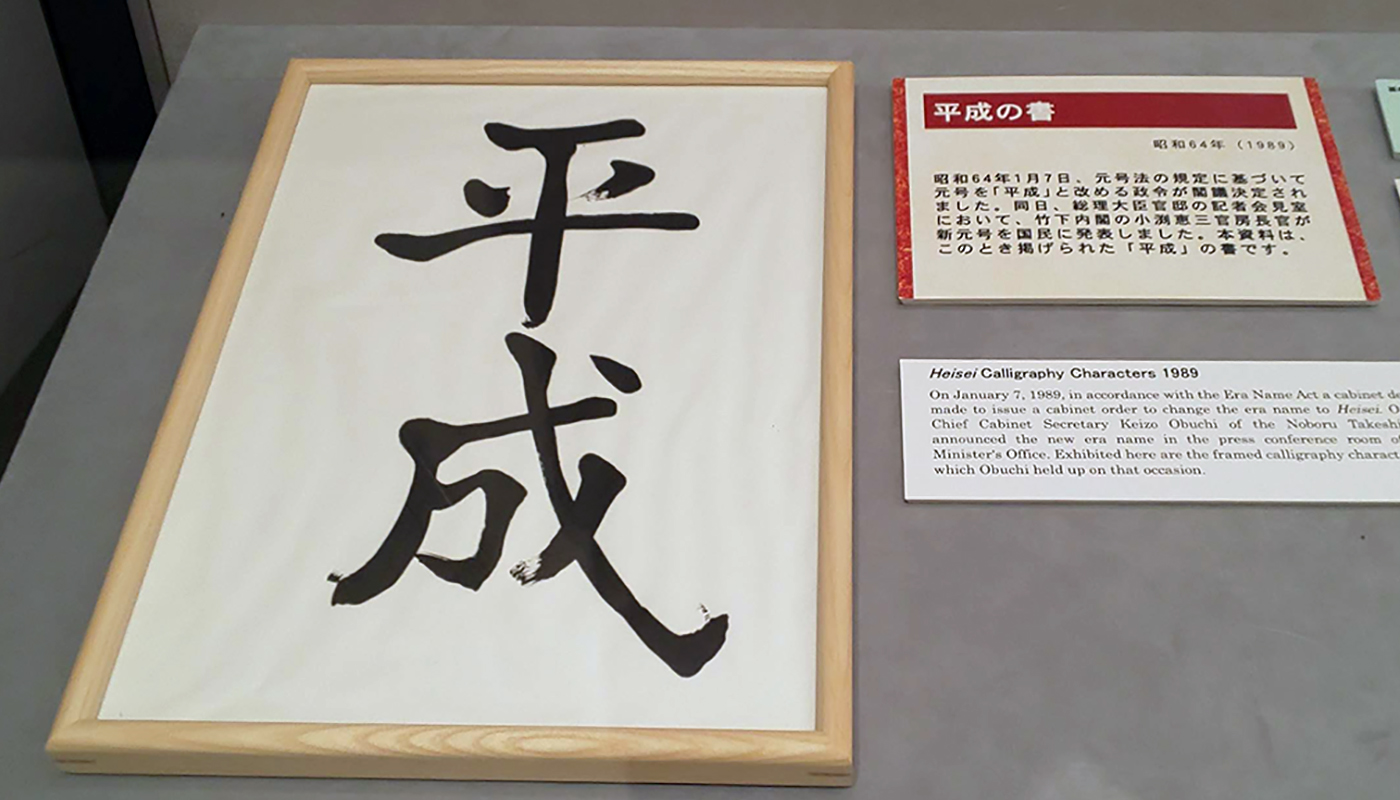 平成
平成の書
昭和64年（1989）
昭和64年1月7日、元号法の規定に基づいて
元号を「平成」と改める政令が閣議決定され
ました。同日、総理大臣官邸の記者会見室
において、竹下内閣の小渕恵三官房長官が
新元号を国民に発表しました。本資料は、
このとき掲げられた「平成」の書です。
Heisei Calligraphy Characters 1989
On January 7, 1989, in accordance with the Era Name Act a cabinet
made to issue a cabinet order to change the era name to Heisei.
Chief Cabinet Secretary Keizo Obuchi of the Noboru
announced the new era name in the press conference room
Minister's Office. Exhibited here are the framed calligraphy
which Obuchi held up on that occasion.